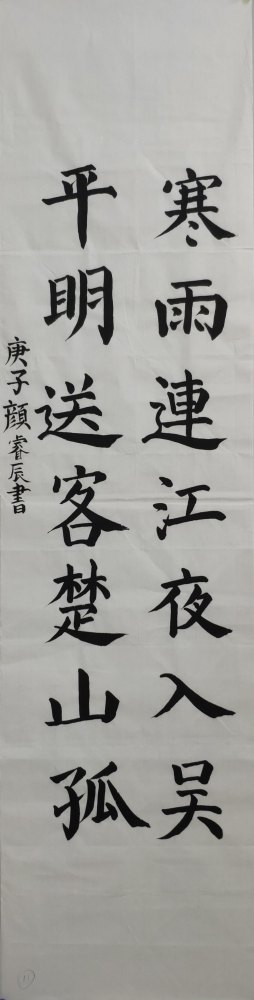 寒雨連江夜入吴
平明送客楚山孤
庚子顔睿辰書
11